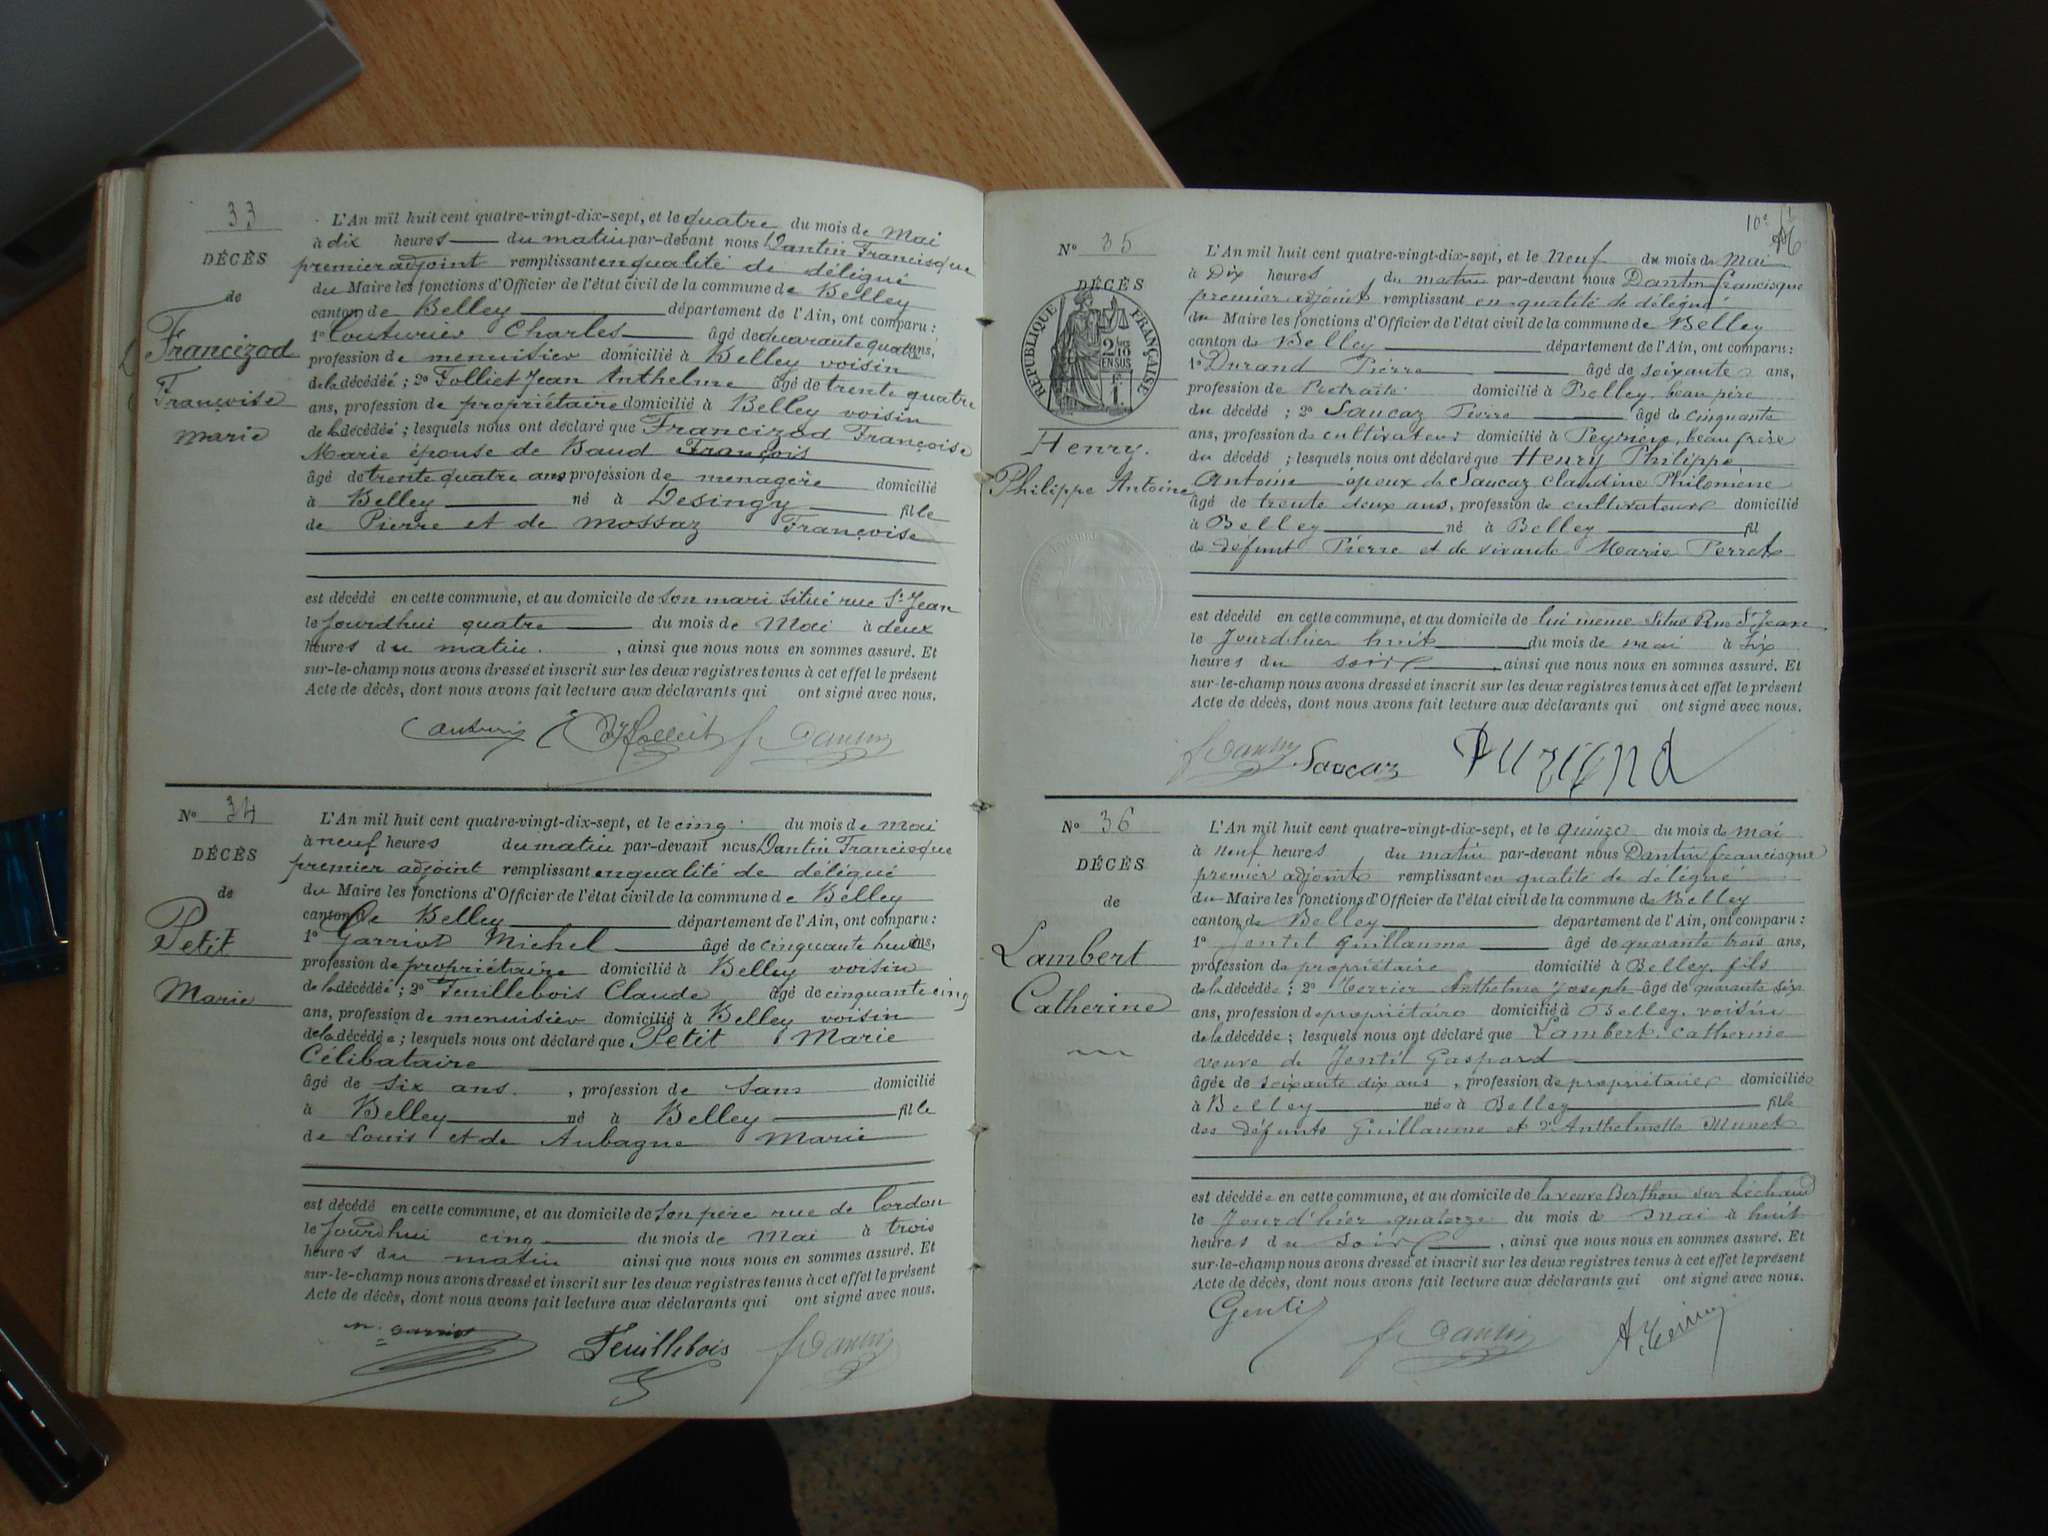 33
DÉCÈS
de
Francizod
Françoise
Marie
L'An mil huit cent quatre-vingt-dix-sept, et le quatre du mois de Mai
à dix heures du matin par-devant nous Dantin Francisque
premier adjoint remplissant en qualité de délégué
du Maire les fonctions d'Officier de l'état civil de la commune de Belley
canton de Belley département de l'Ain, ont comparu :
1º Couturier Charles âgé de quarante quatre ans,
profession de menuisier domicilié à Belley voisin
de la décédée ; 2º Folliet Jean Anthelme âgé de trente quatre
ans, profession de propriétaire domicilié à Belley voisin
de la décédée ; lesquels nous ont déclaré que Francizod Françoise
Marie épouse de Baud François
âgé de trente quatre ans profession de menagère domicilié
à Belley né à Desingy fille
de Pierre et de Mossaz Françoise
est décédé en cette commune, et au domicile de son mari situé rue St Jean
le jourdhui quatre du mois de Mai à deux
heures du matin. , ainsi que nous nous en sommes assuré. Et
sur-le-champ nous avons dressé et inscrit sur les deux registres tenus à cet effet le présent
Acte de décès, dont nous avons fait lecture aux déclarants qui ont signé avec nous.
f Dantin
Nº 34
DÉCÈS
de
Petit
Marie
L'An mil huit cent quatre-vingt-dix-sept, et le cinq du mois de Mai
à neuf heures du matin par-devant nous Dantin Francisque
premier adjoint remplissant en qualité de délégué
du Maire les fonctions d'Officier de l'état civil de la commune de Belley
canton de Belley département de l'Ain, ont comparu :
1º Garriot Michel âgé de cinquante huit ans,
profession de propriétaire domicilié à Belley voisin
de la décédée ; 2º Feuillebois Claude âgé de cinquante cinq
ans, profession de menuisier domicilié à Belley voisin
de la décédée ; lesquels nous ont déclaré que Petit Marie
Célibataire
âgé de six ans. , profession de sans domicilié
à Belley né à Belley fille
de Louis et de Aubagne Marie
est décédé en cette commune, et au domicile de son père rue de Cordon
le jourdhui cinq du mois de Mai à trois
heures du matin ainsi que nous nous en sommes assuré. Et
sur-le-champ nous avons dressé et inscrit sur les deux registres tenus à cet effet le présent
Acte de décès, dont nous avons fait lecture aux déclarants qui ont signé avec nous.
m. garriot Feuillebois f Dantin
10e
Nº 35
DÉCÈS
RÉPUBLIQUE FRANÇAISE
2/10
EN SUS
Henry.
Philippe Antoine
L'An mil huit cent quatre-vingt-dix-sept, et le Neuf du mois de Mai
à Dix heures du matin par-devant nous Dantin francisque
premier adjoint remplissant en qualité de délégué
du Maire les fonctions d'Officier de l'état civil de la commune de Belley
canton de Belley département de l'Ain, ont comparu :
1º Durand Pierre âgé de soixante ans,
profession de Retraité domicilié à Belley, beau père
du décédé ; 2º Saucaz Pierre âgé de cinquante
ans, profession de cultivateur domicilié à Peyrieu, beau frère
du décédé ; lesquels nous ont déclaré que Henry Philippe
Antoine époux de Saucaz Claudine Philomène
âgé de trente deux ans, profession de cultivateur domicilié
à Belley né à Belley fil
de défunt Pierre et de vivante Marie Perret
est décédé en cette commune, et au domicile de lui meme situé Rue St Jean
le Jourd'hier huit du mois de mai à six
heures du soir , ainsi que nous nous en sommes assuré. Et
sur-le-champ nous avons dressé et inscrit sur les deux registres tenus à cet effet le présent
Acte de décès, dont nous avons fait lecture aux déclarants qui ont signé avec nous.
f Dantin Saucaz Durand
Nº 36
DÉCÈS
de
Lambert
Catherine
L'An mil huit cent quatre-vingt-dix-sept, et le quinze du mois de mai
à neuf heures du matin par-devant nous Dantin francisque
premier adjoint remplissant en qualité de délégué
du Maire les fonctions d'Officier de l'état civil de la commune de Belley
canton de Belley département de l'Ain, ont comparu :
1º Jentil Guillaume âgé de quarante trois ans,
profession de propriétaire domicilié à Belley. fils
de la décédée ; 2º Terrier Anthelme Joseph âgé de quarante six
ans, profession de propriétaire domicilié à Belley. voisin
de la décédée ; lesquels nous ont déclaré que Lambert. Catherine
veuve de Jentil Gaspard
âgée de soixante dix ans , profession de propriétaire domiciliée
à Belley née à Belley fille
des défunts Guillaume et d'Anthelmette Munet
est décédée en cette commune, et au domicile de la veuve Berthon sur Léchaud
le Jourd'hier quatorze du mois de Mai à huit
heures du soir , ainsi que nous nous en sommes assuré. Et
sur-le-champ nous avons dressé et inscrit sur les deux registres tenus à cet effet le présent
Acte de décès, dont nous avons fait lecture aux déclarants qui ont signé avec nous.
Gentil f Dantin